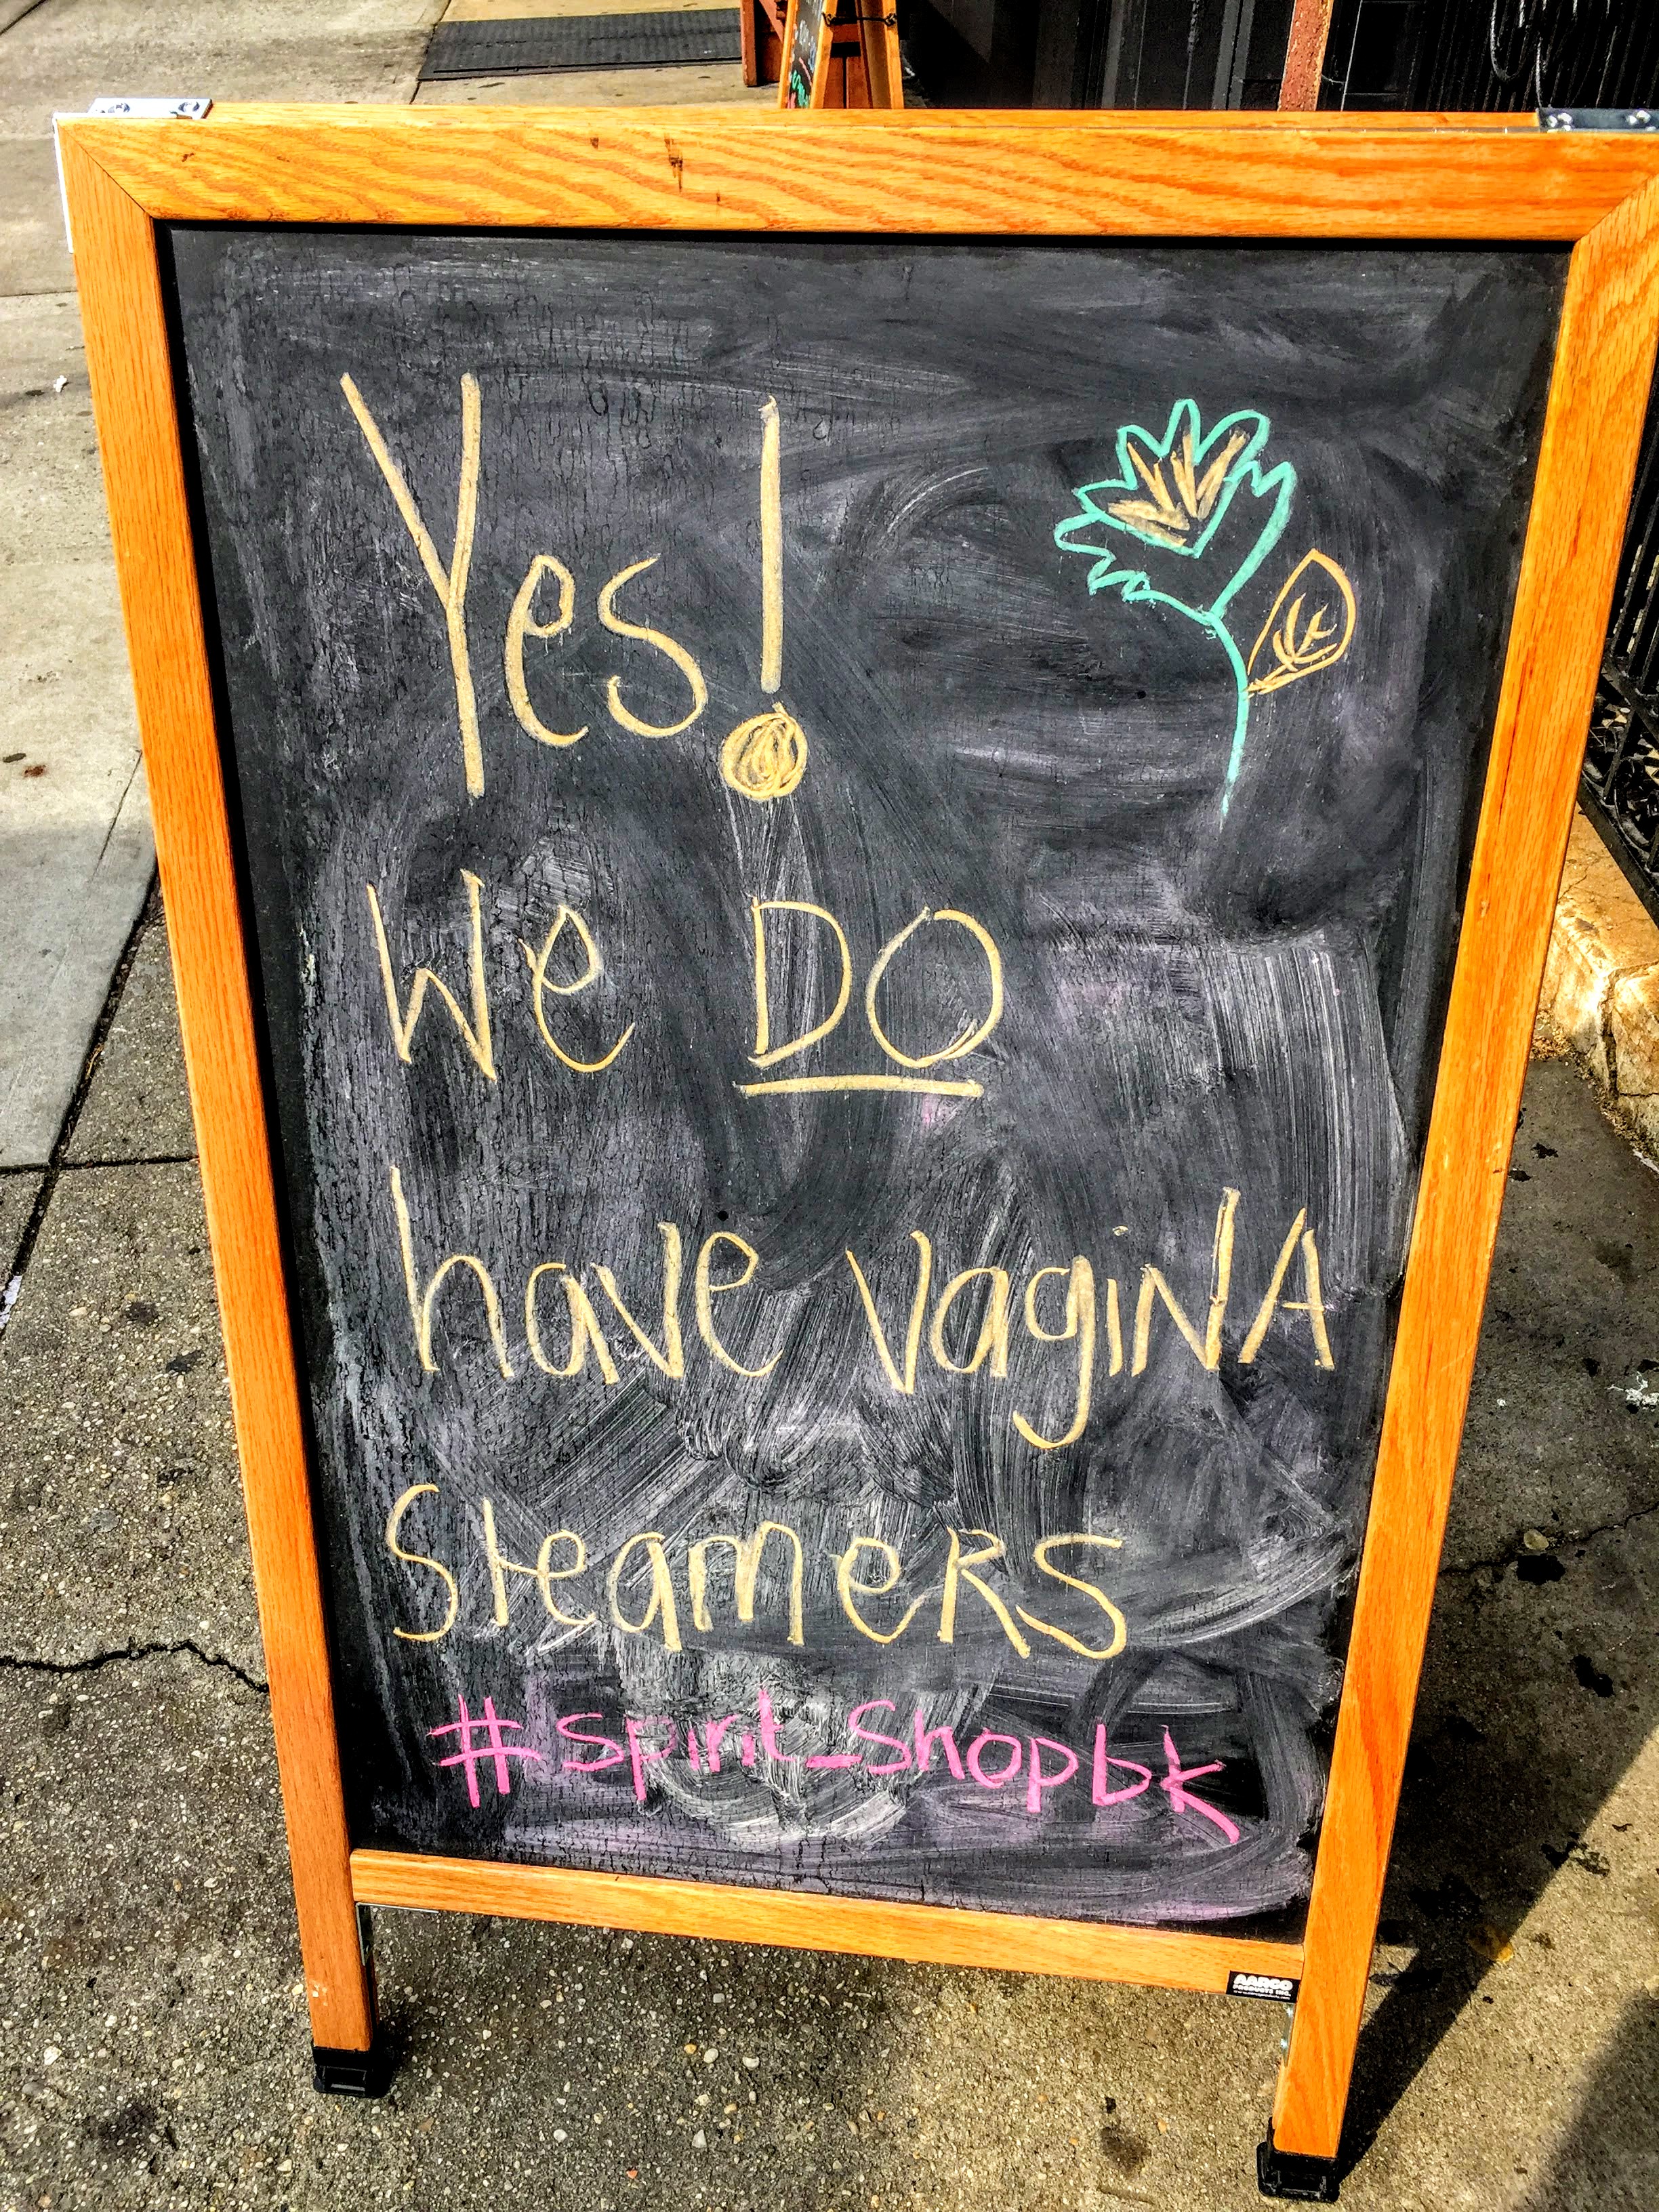 Yes!
We DO
have vagiNA
SteameRS
#Spirit_Shopbk
AARCO
PRODUCTS INC.